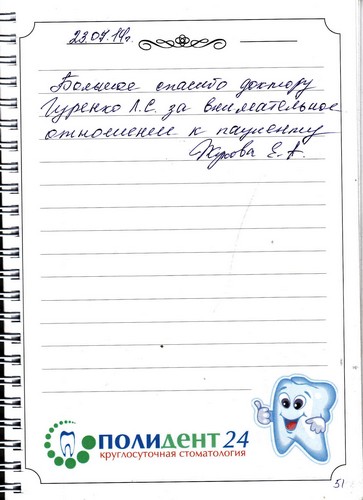 23.07.19г.
Большое спасибо доктору
Гуренко Л.С. за внимательное
отношение к пациенту
Е. А.
ПОЛИДЕНТ 24
круглосуточная стоматология
51